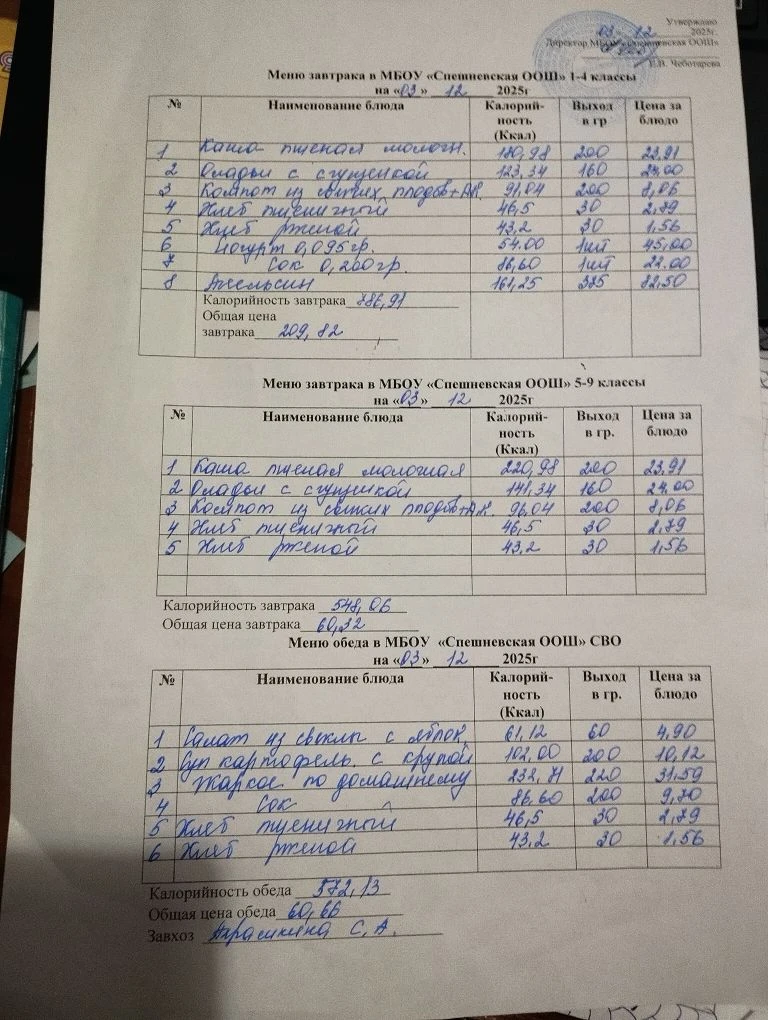 Утверждаю
03 12 2025г.
Директор МБОУ «Спешневская ООШ»
Е.В. Чеботарева
Меню завтрака в МБОУ «Спешневская ООШ» 1-4 классы
на «03» 12 2025г
№ Наименование блюда Калорий-ность (Ккал) Выход в гр Цена за блюдо
1 Каша пшеная молочн. 180,98 200 23,91
2 Оладьи с сгущенкой 123,34 160 24.00
3 Компот из свежих плодов+А.К. 91,04 200 8,06
4 Хлеб пшеничный 46,5 30 2,79
5 Хлеб рженой 43,2 30 1,56
6 Йогурт 0,095гр. 54.00 1шт 45,00
7 Сок 0,200гр. 86,60 1шт 22.00
8 Апельсин 161,25 375 82,50
Калорийность завтрака 786,91
Общая цена
завтрака 209,82
Меню завтрака в МБОУ «Спешневская ООШ» 5-9 классы
на «03» 12 2025г
№ Наименование блюда Калорий-ность (Ккал) Выход в гр. Цена за блюдо
1 Каша пшеная молочная 220,98 200 23,91
2 Оладьи с сгущенкой 141,34 160 24.00
3 Компот из свежих плодов+А.К. 96,04 200 8,06
4 Хлеб пшеничный 46,5 30 2,79
5 Хлеб рженой 43,2 30 1,56
Калорийность завтрака 548,06
Общая цена завтрака 60,32
Меню обеда в МБОУ «Спешневская ООШ» СВО
на «03» 12 2025г
№ Наименование блюда Калорий-ность (Ккал) Выход в гр. Цена за блюдо
1 Салат из свеклы с яблок. 61,12 60 4,90
2 Суп картофель. с крупой 102,00 200 10,12
3 Жаркое по домашнему 232,71 220 31,59
4 Сок 86,60 200 9,70
5 Хлеб пшеничный 46,5 30 2,79
6 Хлеб рженой 43,2 30 1,56
Калорийность обеда 572,13
Общая цена обеда 60,66
Завхоз С.А.